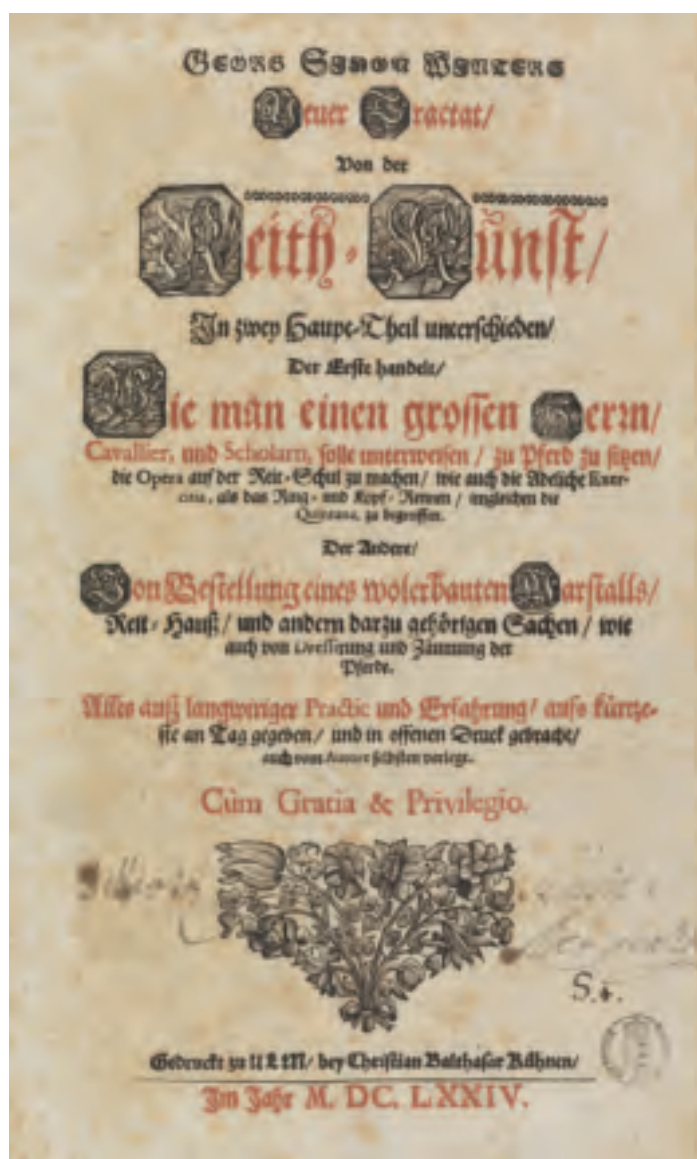 GEORG SIMON WINTERS
Neuer Tractat/
Von der
Reith-Kunst/
In zwey Haupt-Theil unterschieden/
Der Erste handelt/
Wie man einen grossen Herrn/
Cavallier, und Scholarn, solle unterweisen / zu Pferd zu sitzen/
die Opera auf der Reit-Schul zu machen / wie auch die Adeliche Exer-
citia, als das Ring- und Kopf-Rennen / imgleichen die
Quintana, zu begreiffen.
Der Andere/
Von Bestellung eines wolerbauten Marstalls/
Reit-Hauß / und andern darzu gehörigen Sachen / wie
auch von Dressirung und Zäumung der
Pferde.
Alles auß langwiriger Practic und Erfahrung / aufs kürtze-
ste an Tag gegeben / und in offenen Druck gebracht/
auch vom Autore selbsten verlegt.
Cùm Gratia & Privilegio.
S.4.
Gedruckt zu ULM / bey Christian Balthasar Kühnen/
Im Jahr M. DC. LXXIV.